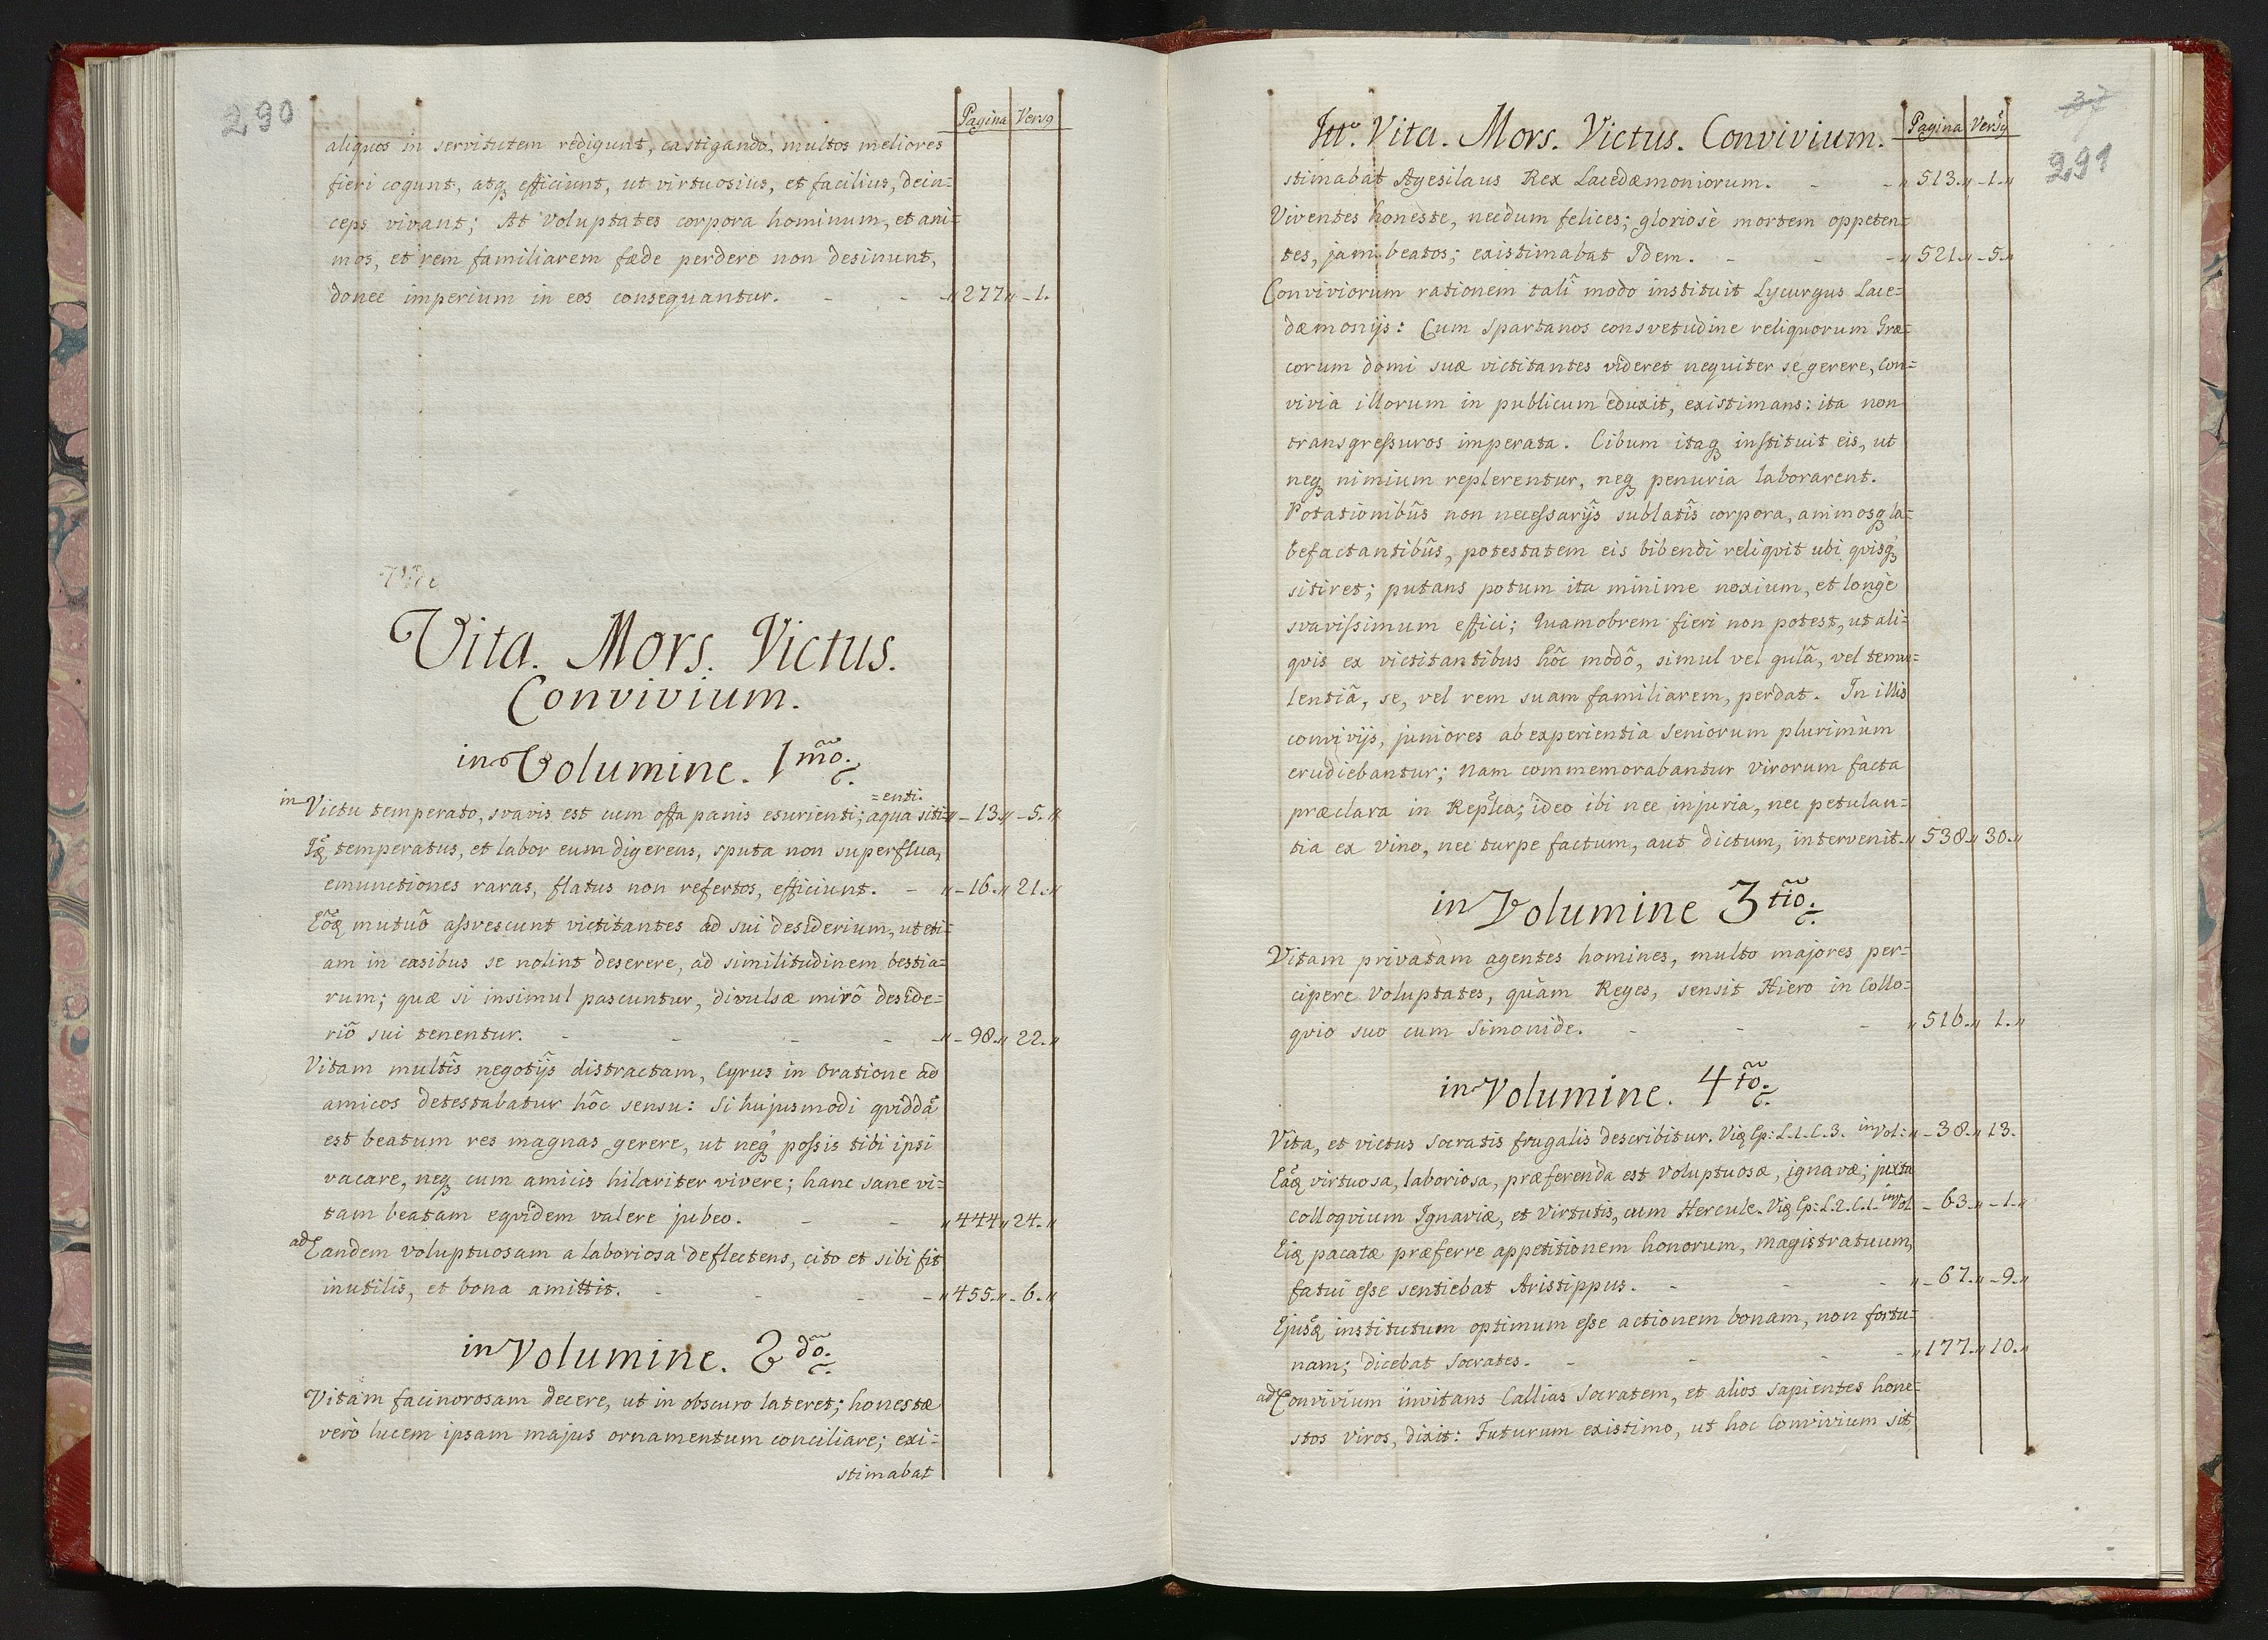 290
Pagina Versq
aliquos in servitutem redigunt, castigando, multos meliores
fieri cogunt, atq efficiunt, ut virtuosius, et facilius, dein=
ceps vivant; At voluptates corpora hominum, et ani=
mos, et rem familiarem fæde perdere non desinunt,
donec imperium in eos consequantur. - - -„277„-1.
Vide
Vita. Mors. Victus.
Convivium.
in Volumine. 1mo.
=enti.
in Victu temperato, svavis est cum offa panis esurienti; aqua siti=„-13.„-5.„
Iq temperatus, et labor eum digerens, sputa non superflua,
emunctiones raras, flatus non refertos, efficiunt. - „-16.„21.„
Eoq mutuô assvescunt victitantes ad sui desiderium, ut eti=
am in casibus se nolint deserere, ad similitudinem bestia=
rum; quæ si insimul pascuntur, divulsæ mirô deside=
riô sui tenentur. - - - - -„-98.„22.„
Vitam multîs negotijs distractam, Cyrus in Oratione ad
amicos detestabatur hôc sensu: Si hujusmodi qviddã
est beatum res magnas gerere, ut neq possis tibi ipsi
vacare, neq cum amicis hilariter vivere; hanc sane vi=
tam beatam eqvidem valere jubeo. - - „444„24.„
ad Eandem voluptuosam a laboriosa deflectens, cito et sibi fit
inutilis, et bona amittit. - - - -„455.„-6.„
in Volumine. 2do.
Vitam facinorosam decere, ut in obscuro lateret; honestæ
verò lucem ipsam majus ornamentum conciliare; exi=
stimabat
37
291
Itt. Vita. Mors. Victus. Convivium. Pagina Versq
stimabat Agesilaus Rex Lacedæmoniorum. - -„513.„-1.„
Viventes honeste, necdum felices; gloriosè mortem oppeten=
tes, jam beatos; existimabat Idem. - - -„521.„-5.„
Conviviorum rationem talî modo instituit Lycurgus Lace=
dæmonijs: Cum Spartanos consvetudine reliquorum Græ=
corum domi suæ victitantes videret nequiter se gerere, Con=
vivia illorum in publicum eduxit, existimans: ita non
transgressuros imperata. Cibum itaq instituit eis, ut
neq nimium replerentur, neq penuria laborarent.
Potationibûs non necessarijs sublatîs corpora, animosq la=
befactantibûs, potestatem eis bibendi reliqvit ubi qvisq
sitiret; putans potum ita minime noxium, et longè
svavissimum effici; Quamobrem fieri non potest, ut ali=
qvis ex victitantibus hôc modô, simul vel gulâ, vel temu=
lentiâ, se, vel rem suam familiarem, perdat. In illis
convivijs, juniores ab experientia Seniorum plurimùm
erudiebantur; Nam commemorabantur virorum facta
præclara in Replca; ideo ibi nec injuria, nec petulan=
tia ex vino, nec turpe factum, aut dictum, intervenit.„538„30.„
in Volumine 3tio.
Vitam privatam agentes homines, multo majores per=
cipere voluptates, quàm Reges, sensit Hiero in Collo=
qvio suo cum Simonide. - - - „516.„1.„
in Volumine. 4to.
Vita, et victus Socratis frugalis describitur. Viq Ep: L.1.C.3. in Vol:„-38.„13.
Eaq virtuosa, laboriosa, præferenda est voluptuosæ, ignavæ; juxta
colloqvium Ignaviæ, et Virtutis, cum Hercule. Viq Ep: L.2.C.1. in Vol -63.„-1.„
Eiq pacatæ præferre appetitionem honorum, magistratuum,
fatui esse sentiebat Aristippus. - - - „-67.„-9.„
Ejusq institutum optimum esse actionem bonam, non fortu=
nam; dicebat Socrates. - - - -„177.„10.„
ad Convivium invitans Callias Socratem, et alios sapientes hone=
stos viros, dixit: Futurum existimo, ut hoc Convivium sit